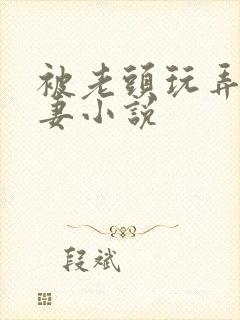 被老頭玩弄
妻小說
段斌